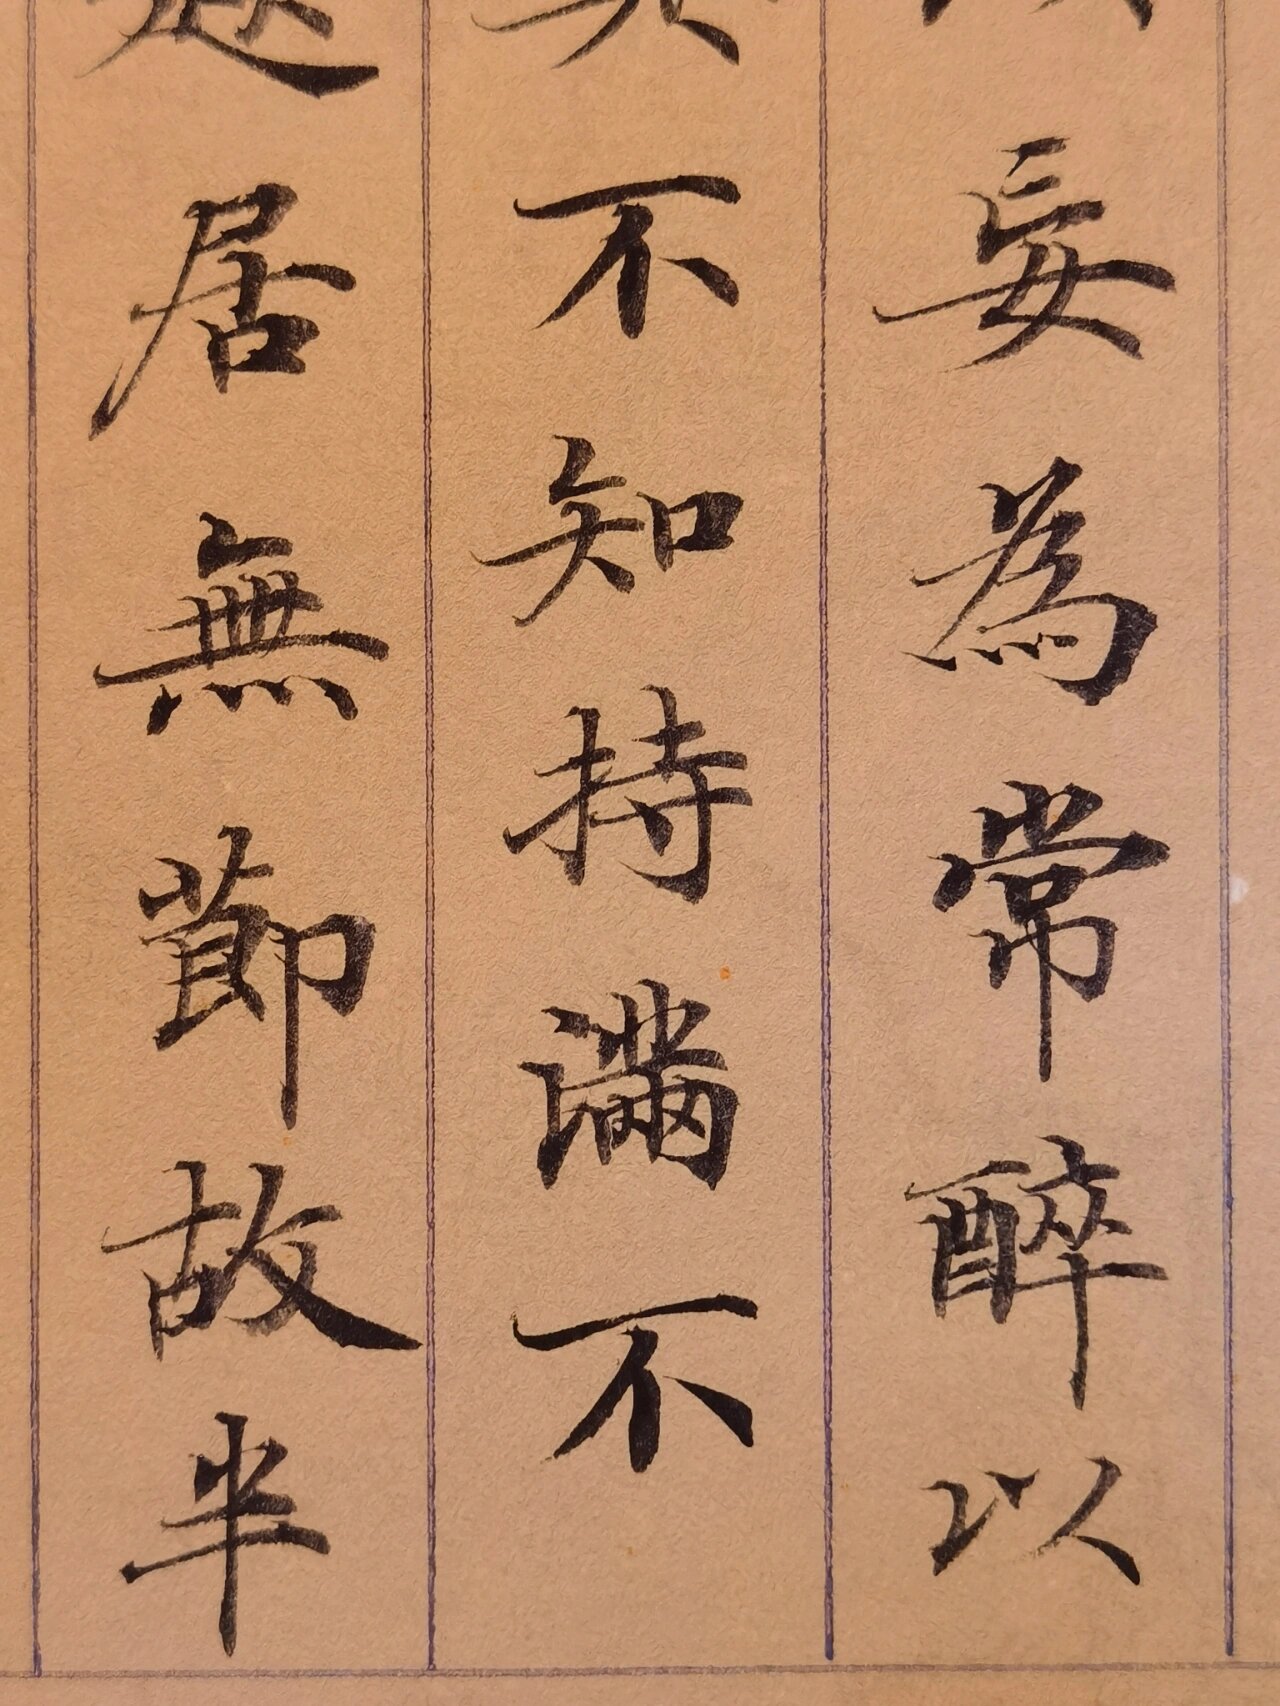 妄為常醉以
不知持滿不
居無節故半